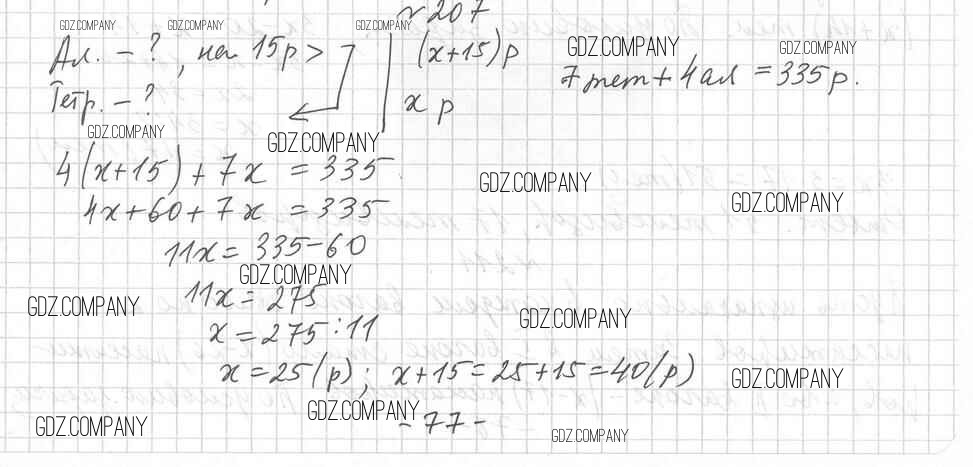 № 207
GDZ.COMPANY GDZ.COMPANY GDZ.COMPANY
Ал. – ?, на 15р > (x+15) р GDZ.COMPANY GDZ.COMPANY
Тетр. – ? x р 7 тет + 4 ал = 335 р.
GDZ.COMPANY GDZ.COMPANY
4(x+15) + 7x = 335
GDZ.COMPANY
4x+60+7x = 335 GDZ.COMPANY
11x = 335-60
GDZ.COMPANY
11x = 275
GDZ.COMPANY
x = 275 : 11 GDZ.COMPANY
x = 25 (р); x+15 = 25+15 = 40 (р) GDZ.COMPANY
GDZ.COMPANY
GDZ.COMPANY - 77 -
GDZ.COMPANY